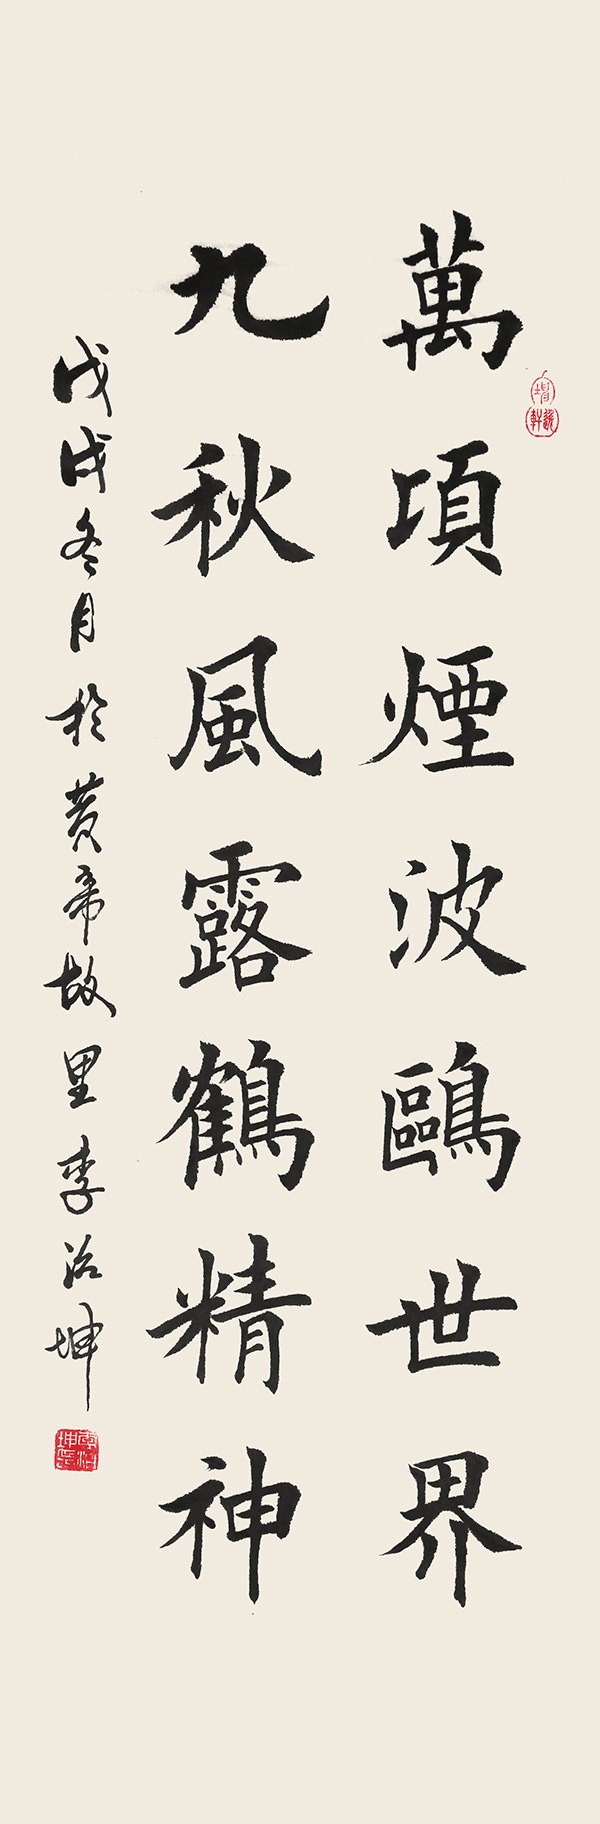 萬頃煙波鷗世界
九秋風露鶴精神
戊戌冬月於黄帝故里李治坤